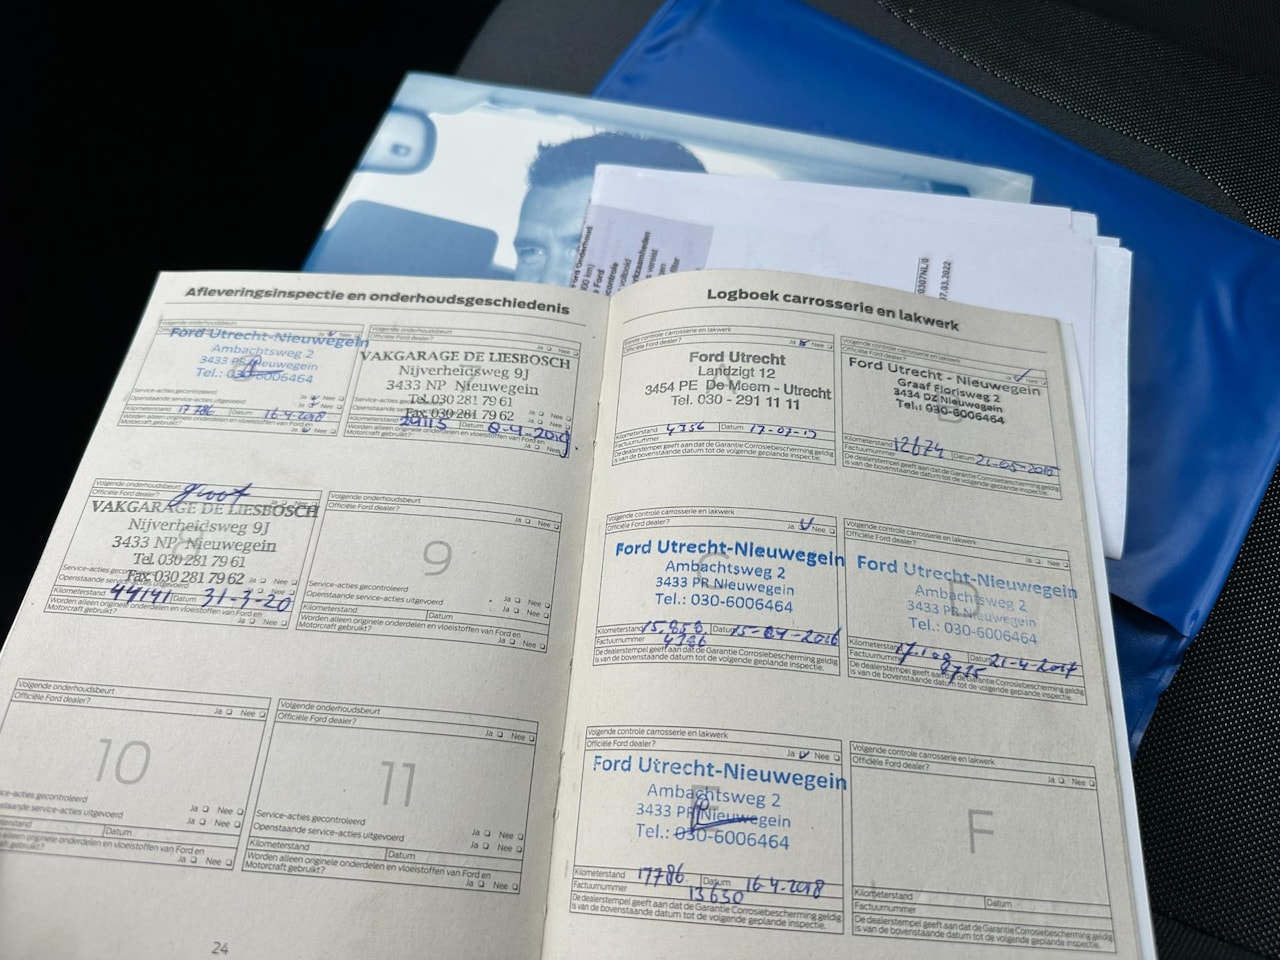 Ford Onderhoud
controle
voltooid
Ford
0307NL.0
07.03.2022
Afleveringsinspectie en onderhoudsgeschiedenis
Volgende onderhoudsbeurt
Ja Nee
Ford Utrecht-Nieuwegein
Ambachtsweg 2
3433 PR Nieuwegein
Tel.: 030-6006464
Service-acties gecontroleerd
Openstaande service-acties uitgevoerd
Kilometerstand 17786 Datum 16-4-2018
Worden alleen originele onderdelen en vloeistoffen van Ford en
Motorcraft gebruikt? Ja Nee
Volgende onderhoudsbeurt
Officiële Ford dealer? Ja Nee
VAKGARAGE DE LIESBOSCH
Nijverheidsweg 9J
3433 NP Nieuwegein
Tel. 030 281 79 61
Fax 030 281 79 62
Kilometerstand 29115 Datum 8-4-2019
Worden alleen originele onderdelen en vloeistoffen van Ford en
Motorcraft gebruikt? Ja Nee
Volgende onderhoudsbeurt
Officiële Ford dealer? Ja Nee
groot
VAKGARAGE DE LIESBOSCH
Nijverheidsweg 9J
3433 NP Nieuwegein
Tel. 030 281 79 61
Fax 030 281 79 62
Service-acties gecontroleerd
Openstaande service-acties uitgevoerd Ja Nee
Kilometerstand 44141 Datum 31-3-20
Worden alleen originele onderdelen en vloeistoffen van Ford en
Motorcraft gebruikt? Ja Nee
Volgende onderhoudsbeurt
Officiële Ford dealer? Ja Nee
9
Service-acties gecontroleerd Ja Nee
Openstaande service-acties uitgevoerd Ja Nee
Kilometerstand Datum
Worden alleen originele onderdelen en vloeistoffen van Ford en
Motorcraft gebruikt? Ja Nee
Volgende onderhoudsbeurt
Officiële Ford dealer? Ja Nee
10
gecontroleerd Ja Nee
Openstaande service-acties uitgevoerd Ja Nee
Datum
Worden alleen originele onderdelen en vloeistoffen van Ford en
gebruikt? Ja Nee
Volgende onderhoudsbeurt
Officiële Ford dealer? Ja Nee
11
Service-acties gecontroleerd Ja Nee
Openstaande service-acties uitgevoerd Ja Nee
Kilometerstand Datum
Worden alleen originele onderdelen en vloeistoffen van Ford en
Motorcraft gebruikt? Ja Nee
24
Logboek carrosserie en lakwerk
Eerste controle carrosserie en lakwerk
Officiële Ford dealer? Ja Nee
Ford Utrecht
Landzigt 12
3454 PE De Meern - Utrecht
Tel. 030 - 291 11 11
Kilometerstand 4756 Datum 17-07-13
Factuurnummer
De dealerstempel geeft aan dat de Garantie Corrosiebescherming geldig
is van bovenstaande datum tot de volgende geplande inspectie.
Volgende controle carrosserie en lakwerk
Officiële Ford dealer? Ja Nee
Ford Utrecht - Nieuwegein
Graaf Florisweg 2
3434 DZ Nieuwegein
Tel.: 030-6006464
Kilometerstand 12674
Factuurnummer Datum 21-05-2015
De dealerstempel geeft aan dat de Garantie Corrosiebescherming geldig
is van bovenstaande datum tot de volgende geplande inspectie.
Volgende controle carrosserie en lakwerk
Officiële Ford dealer? Ja Nee
C
Ford Utrecht-Nieuwegein
Ambachtsweg 2
3433 PR Nieuwegein
Tel.: 030-6006464
Kilometerstand 15.858 Datum 15-04-2016
Factuurnummer 4386
De dealerstempel geeft aan dat de Garantie Corrosiebescherming geldig
is van bovenstaande datum tot de volgende geplande inspectie.
Volgende controle carrosserie en lakwerk
Officiële Ford dealer? Ja Nee
D
Ford Utrecht-Nieuwegein
Ambachtsweg 2
3433 PR Nieuwegein
Tel.: 030-6006464
Kilometerstand Datum 21-4-2017
Factuurnummer 8775
De dealerstempel geeft aan dat de Garantie Corrosiebescherming geldig
is van bovenstaande datum tot de volgende geplande inspectie.
Volgende controle carrosserie en lakwerk
Officiële Ford dealer? Ja Nee
E
Ford Utrecht-Nieuwegein
Ambachtsweg 2
3433 PR Nieuwegein
Tel.: 030-6006464
Kilometerstand 17786 Datum 16-4-2018
Factuurnummer 13650
De dealerstempel geeft aan dat de Garantie Corrosiebescherming geldig
is van bovenstaande datum tot de volgende geplande inspectie.
Volgende controle carrosserie en lakwerk
Officiële Ford dealer? Ja Nee
F
Kilometerstand
Factuurnummer Datum
De dealerstempel geeft aan dat de Garantie Corrosiebescherming geldig
is van bovenstaande datum tot de volgende geplande inspectie.